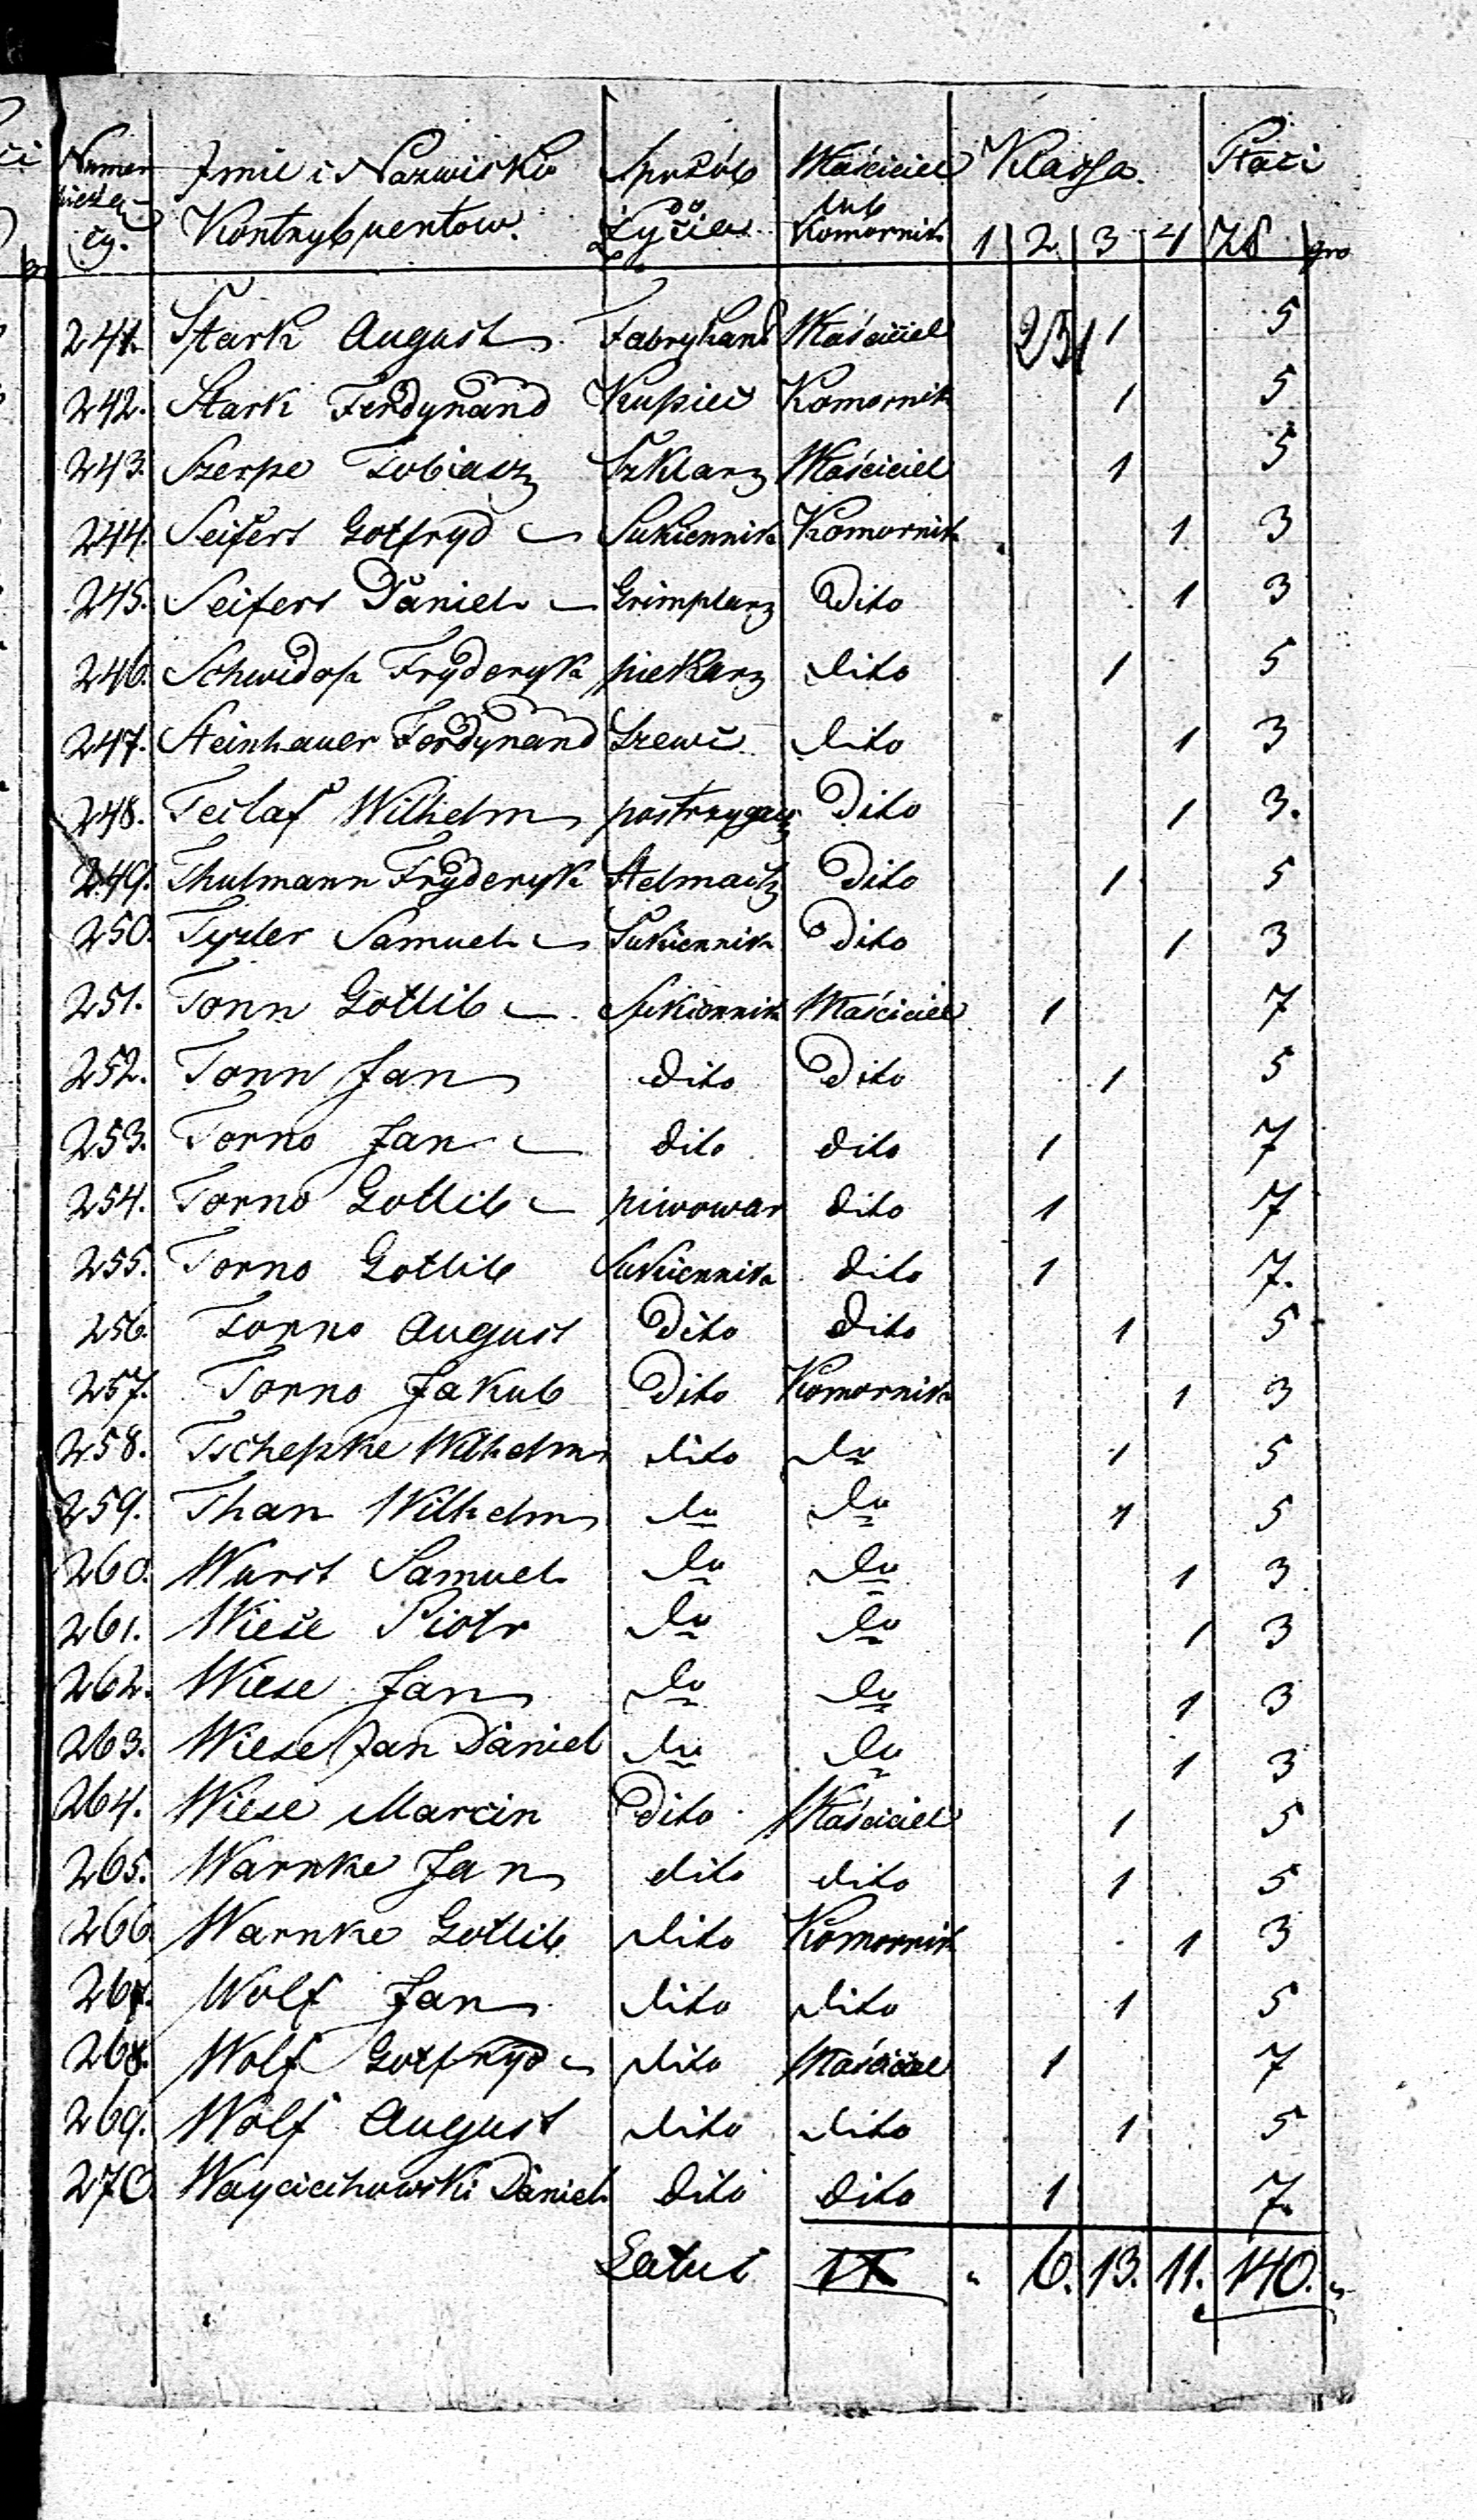 Numer Imie i Nazwisko Sposób Właściciel Klassa. Płaci
bieżą- Kontrybuentow. do lub
cy. Życia Komornik 1 2 3 4 Zł gro
241. Stark August Fabrykant Właściciel 1 5
242. Stark Ferdynand Kupiec Komornik 1 5
243. Szerpe Tobiasz Szklarz Właściciel 1 5
244. Seifert Gotfryd Sukiennik Komornik 1 3
245. Seifert Daniel Grimplarz Dito 1 3
246. Fryderyk piekarz dito 1 5
247. Steinhauer Ferdynand Szewc dito 1 3
248. Tetlaf Wilhelm postrzygacz Dito 1 3.
249. Thulmann Fryderyk Stelmach Dito 1 5
250. Tyzler Samuel Sukiennik Dito 1 3
251. Tonn Gotlib Sukiennik Właściciel 1 7
252. Tonn Jan dito Dito 1 5
253. Torno Jan dito dito 1 7
254. Torno Gotlib piwowar dito 1 7
255. Torno Gotlib Sukiennik dito 1 7.
256. Torno August Dito dito 1 5
257. Torno Jakub Dito Komornik 1 3
258. Tschepke Wilhelm dito do 1 5
259. Than Wilhelm do do 1 5
260. Wurst Samuel do do 1 3
261. Wieze Piotr do do 1 3
262. Wieze Jan do do 1 3
263. Wieze Jan Daniel do do 1 3
264. Wieze Marcin Dito Właściciel 1 5
265. Warnke Jan dito dito 1 5
266 Warnke Gotlib dito Komornik 1 3
267. Wolf Jan dito dito 1 5
268. Wolf Gotfryd dito Właściciel 1 7
269. Wolf August dito dito 1 5
270 Woyciechowski Daniel dito dito 1 7.
Latus " 6. 13. 11. 140. "